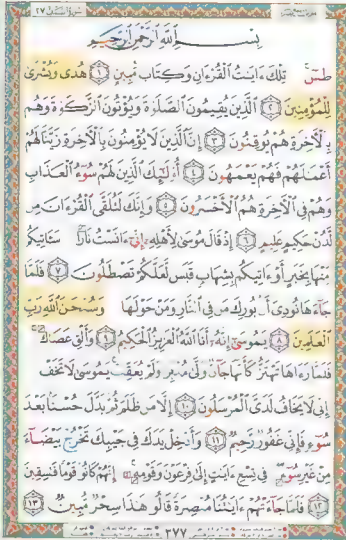 بِسْمِ اللَّهِ الرَّحْمَٰنِ الرَّحِيمِ
طسٓ تِلْكَ ءَايَٰتُ الْقُرْءَانِ وَكِتَابٍ مُّبِينٍ ١ هُدًى وَبُشْرَىٰ
لِلْمُؤْمِنِينَ ٢ الَّذِينَ يُقِيمُونَ الصَّلَوٰةَ وَيُؤْتُونَ الزَّكَوٰةَ وَهُم
بِالْأَخِرَةِ هُمْ يُوقِنُونَ ٣ إِنَّ الَّذِينَ لَا يُؤْمِنُونَ بِالْأَخِرَةِ زَيَّنَّا لَهُمْ
أَعْمَٰلَهُمْ فَهُمْ يَعْمَهُونَ ٤ أُو۟لَٰٓئِكَ الَّذِينَ لَهُمْ سُوٓءُ الْعَذَابِ
وَهُمْ فِي الْأَخِرَةِ هُمُ الْأَخْسَرُونَ ٥ وَإِنَّكَ لَتُلَقَّى الْقُرْءَانَ مِن
لَّدُنْ حَكِيمٍ عَلِيمٍ ٦ إِذْ قَالَ مُوسَىٰ لِأَهْلِهِ إِنِّي ءَانَسْتُ نَارًا سَـَٔاتِيكُم
مِّنْهَا بِخَبَرٍ أَوْ ءَاتِيكُم بِشِهَابٍ قَبَسٍ لَّعَلَّكُمْ تَصْطَلُونَ ٧ فَلَمَّا
جَآءَهَا نُودِيَ أَنۢ بُورِكَ مَن فِي النَّارِ وَمَنْ حَوْلَهَا وَسُبْحَٰنَ اللَّهِ رَبِّ
الْعَٰلَمِينَ ٨ يَٰمُوسَىٰٓ إِنَّهُۥٓ أَنَا اللَّهُ الْعَزِيزُ الْحَكِيمُ ٩ وَأَلْقِ عَصَاكَ
فَلَمَّا رَءَاهَا تَهْتَزُّ كَأَنَّهَا جَآنٌّ وَلَّىٰ مُدْبِرًا وَلَمْ يُعَقِّبْ يَٰمُوسَىٰ لَا تَخَفْ
إِنِّي لَا يَخَافُ لَدَيَّ الْمُرْسَلُونَ ١٠ إِلَّا مَن ظَلَمَ ثُمَّ بَدَّلَ حُسْنًۢا بَعْدَ
سُوٓءٍ فَإِنِّي غَفُورٌ رَّحِيمٌ ١١ وَأَدْخِلْ يَدَكَ فِي جَيْبِكَ تَخْرُجْ بَيْضَآءَ
مِنْ غَيْرِ سُوٓءٍ فِي تِسْعِ ءَايَٰتٍ إِلَىٰ فِرْعَوْنَ وَقَوْمِهِۦٓ إِنَّهُمْ كَانُوا۟ قَوْمًا فَٰسِقِينَ
١٢ فَلَمَّا جَآءَتْهُمْ ءَايَٰتُنَا مُبْصِرَةً قَالُوا۟ هَٰذَا سِحْرٌ مُّبِينٌ ١٣
٣٧٧